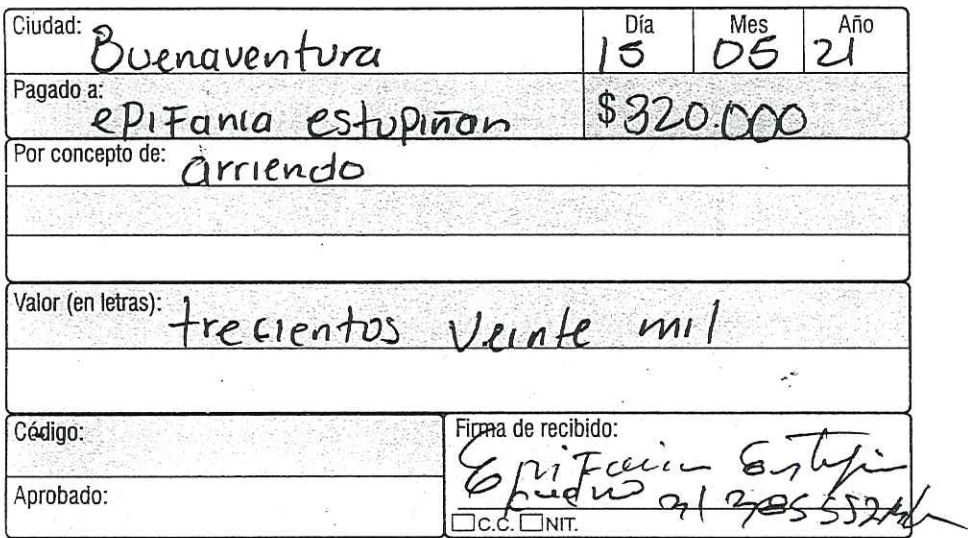 Ciudad: Buenaventura
Día 15 Mes 05 Año 21
Pagado a: ePiFania estupiñan $320.000
Por concepto de: arriendo
Valor (en letras): trecientos veinte mil
Código:
Firma de recibido:
EpiFania
Aprobado:
C.C. NIT.